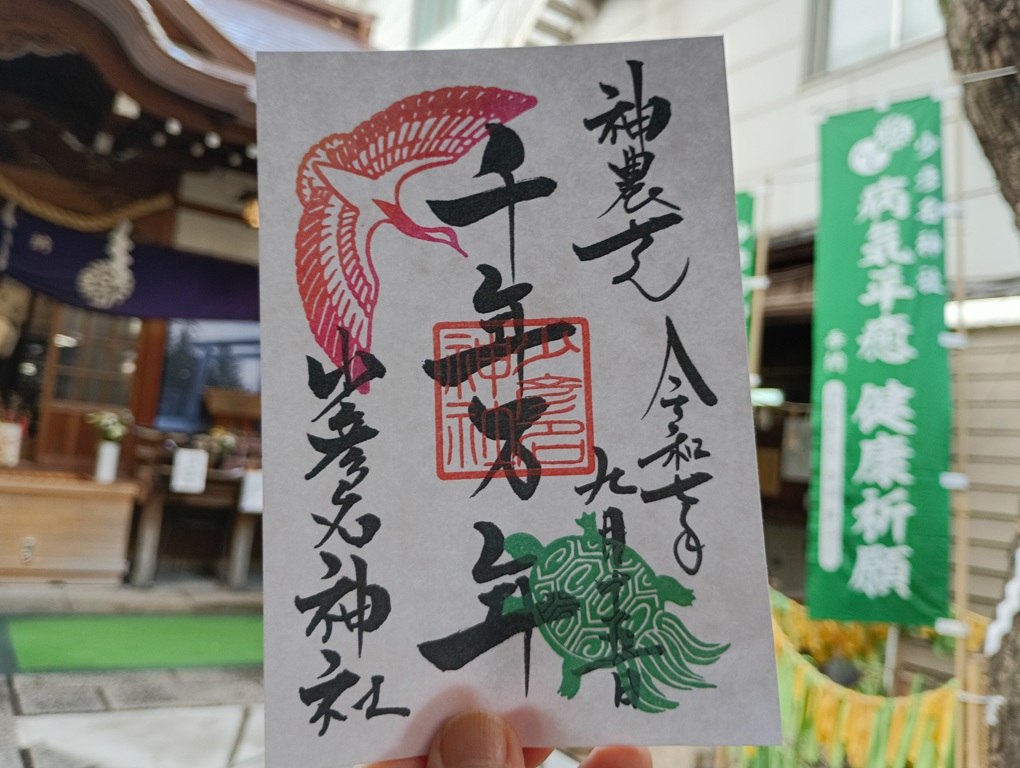 神農さん
令和七年
九月
千年万年
少彦名神社
少彦名
神社
少彦名神社
病気平癒 健康祈願
奉納